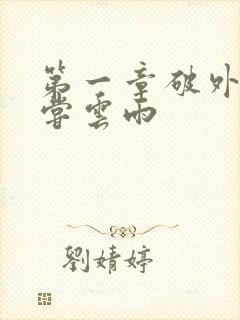 第一章破外
嘗雲雨
劉婧婷